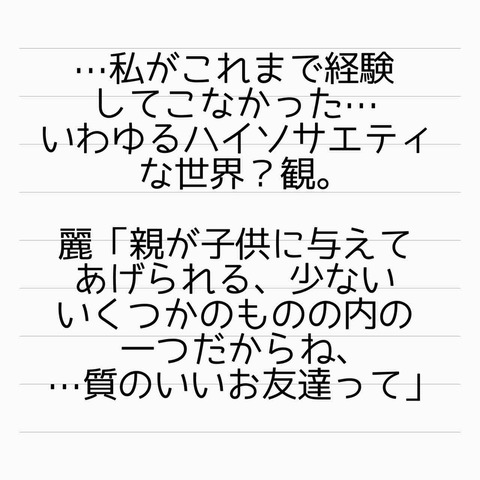 …私がこれまで経験
してこなかった…
いわゆるハイソサエティ
な世界？観。
麗「親が子供に与えて
あげられる、少ない
いくつかのものの内の
一つだからね、
…質のいいお友達って」